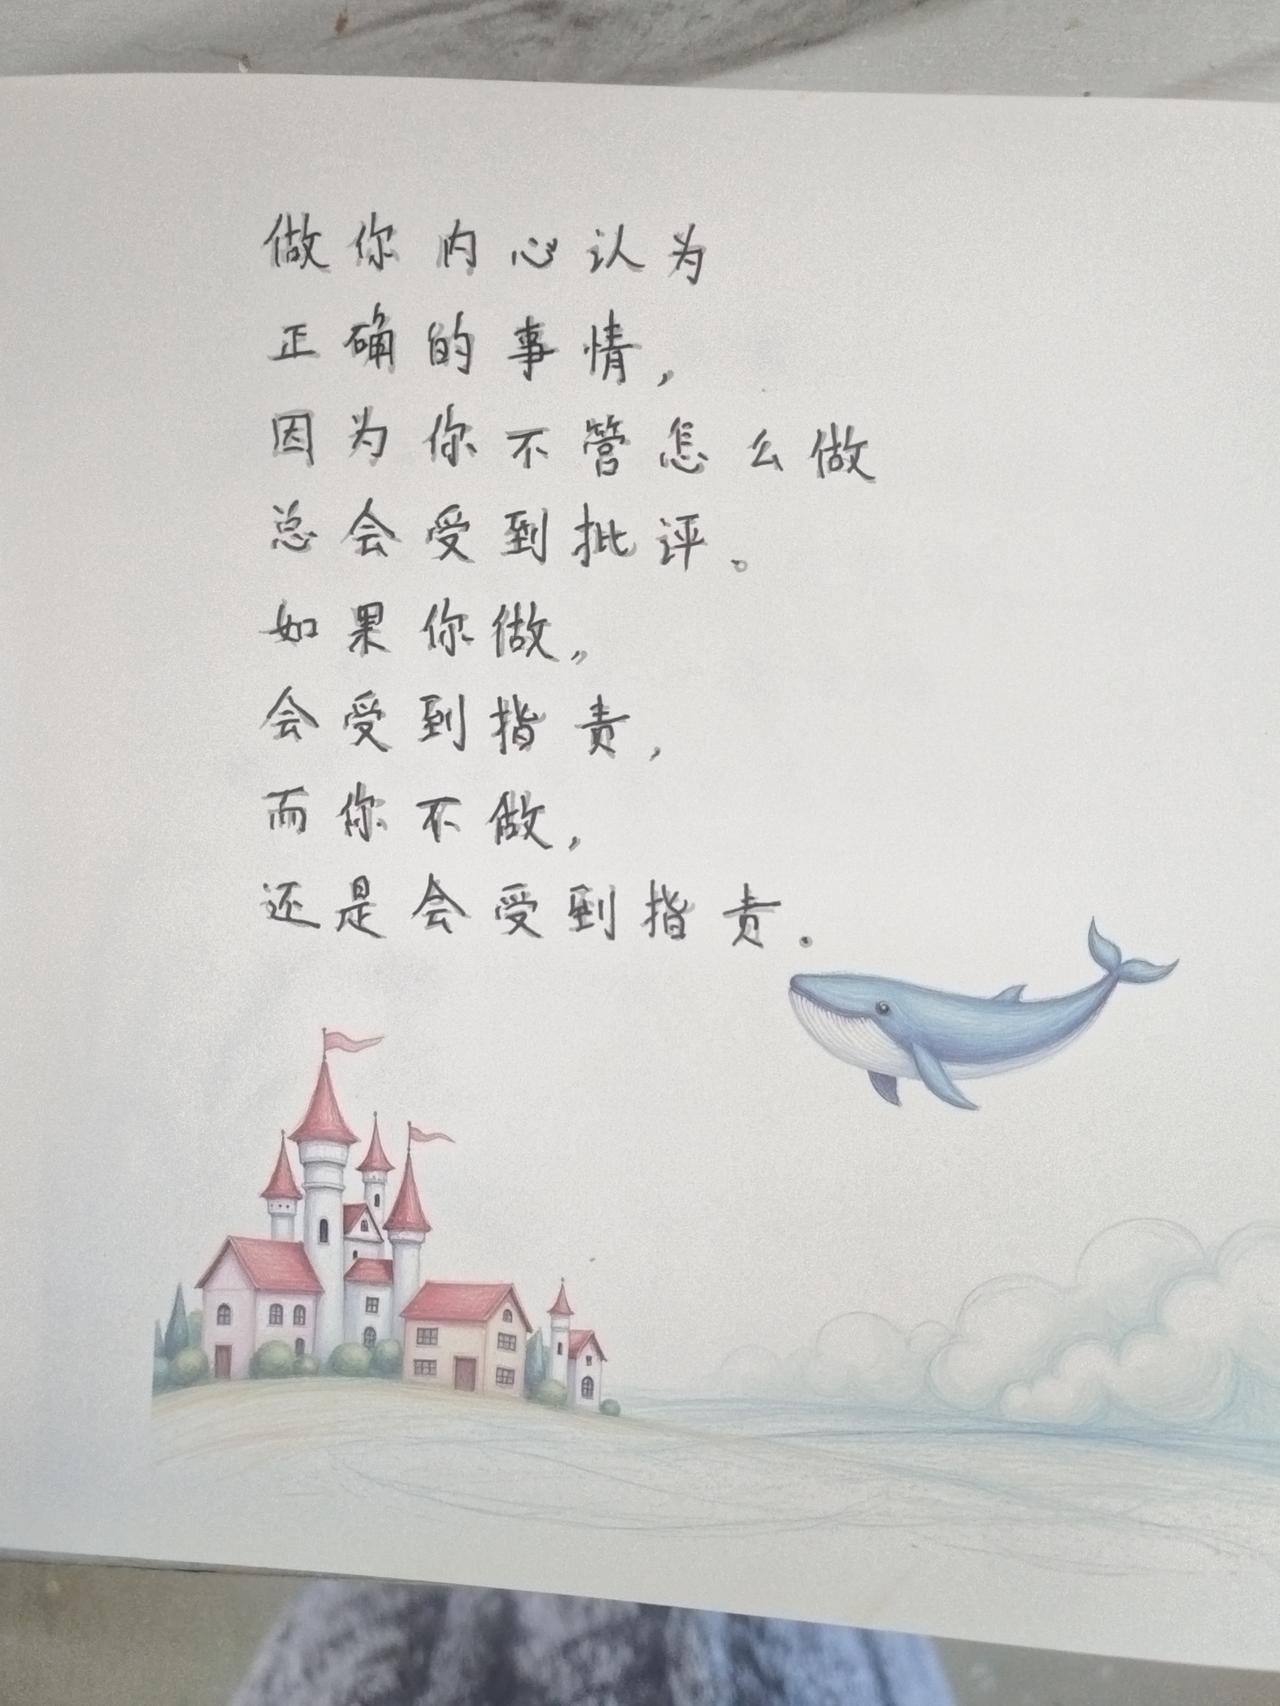 做你内心认为
正确的事情，
因为你不管怎么做
总会受到批评。
如果你做，
会受到指责，
而你不做，
还是会受到指责.